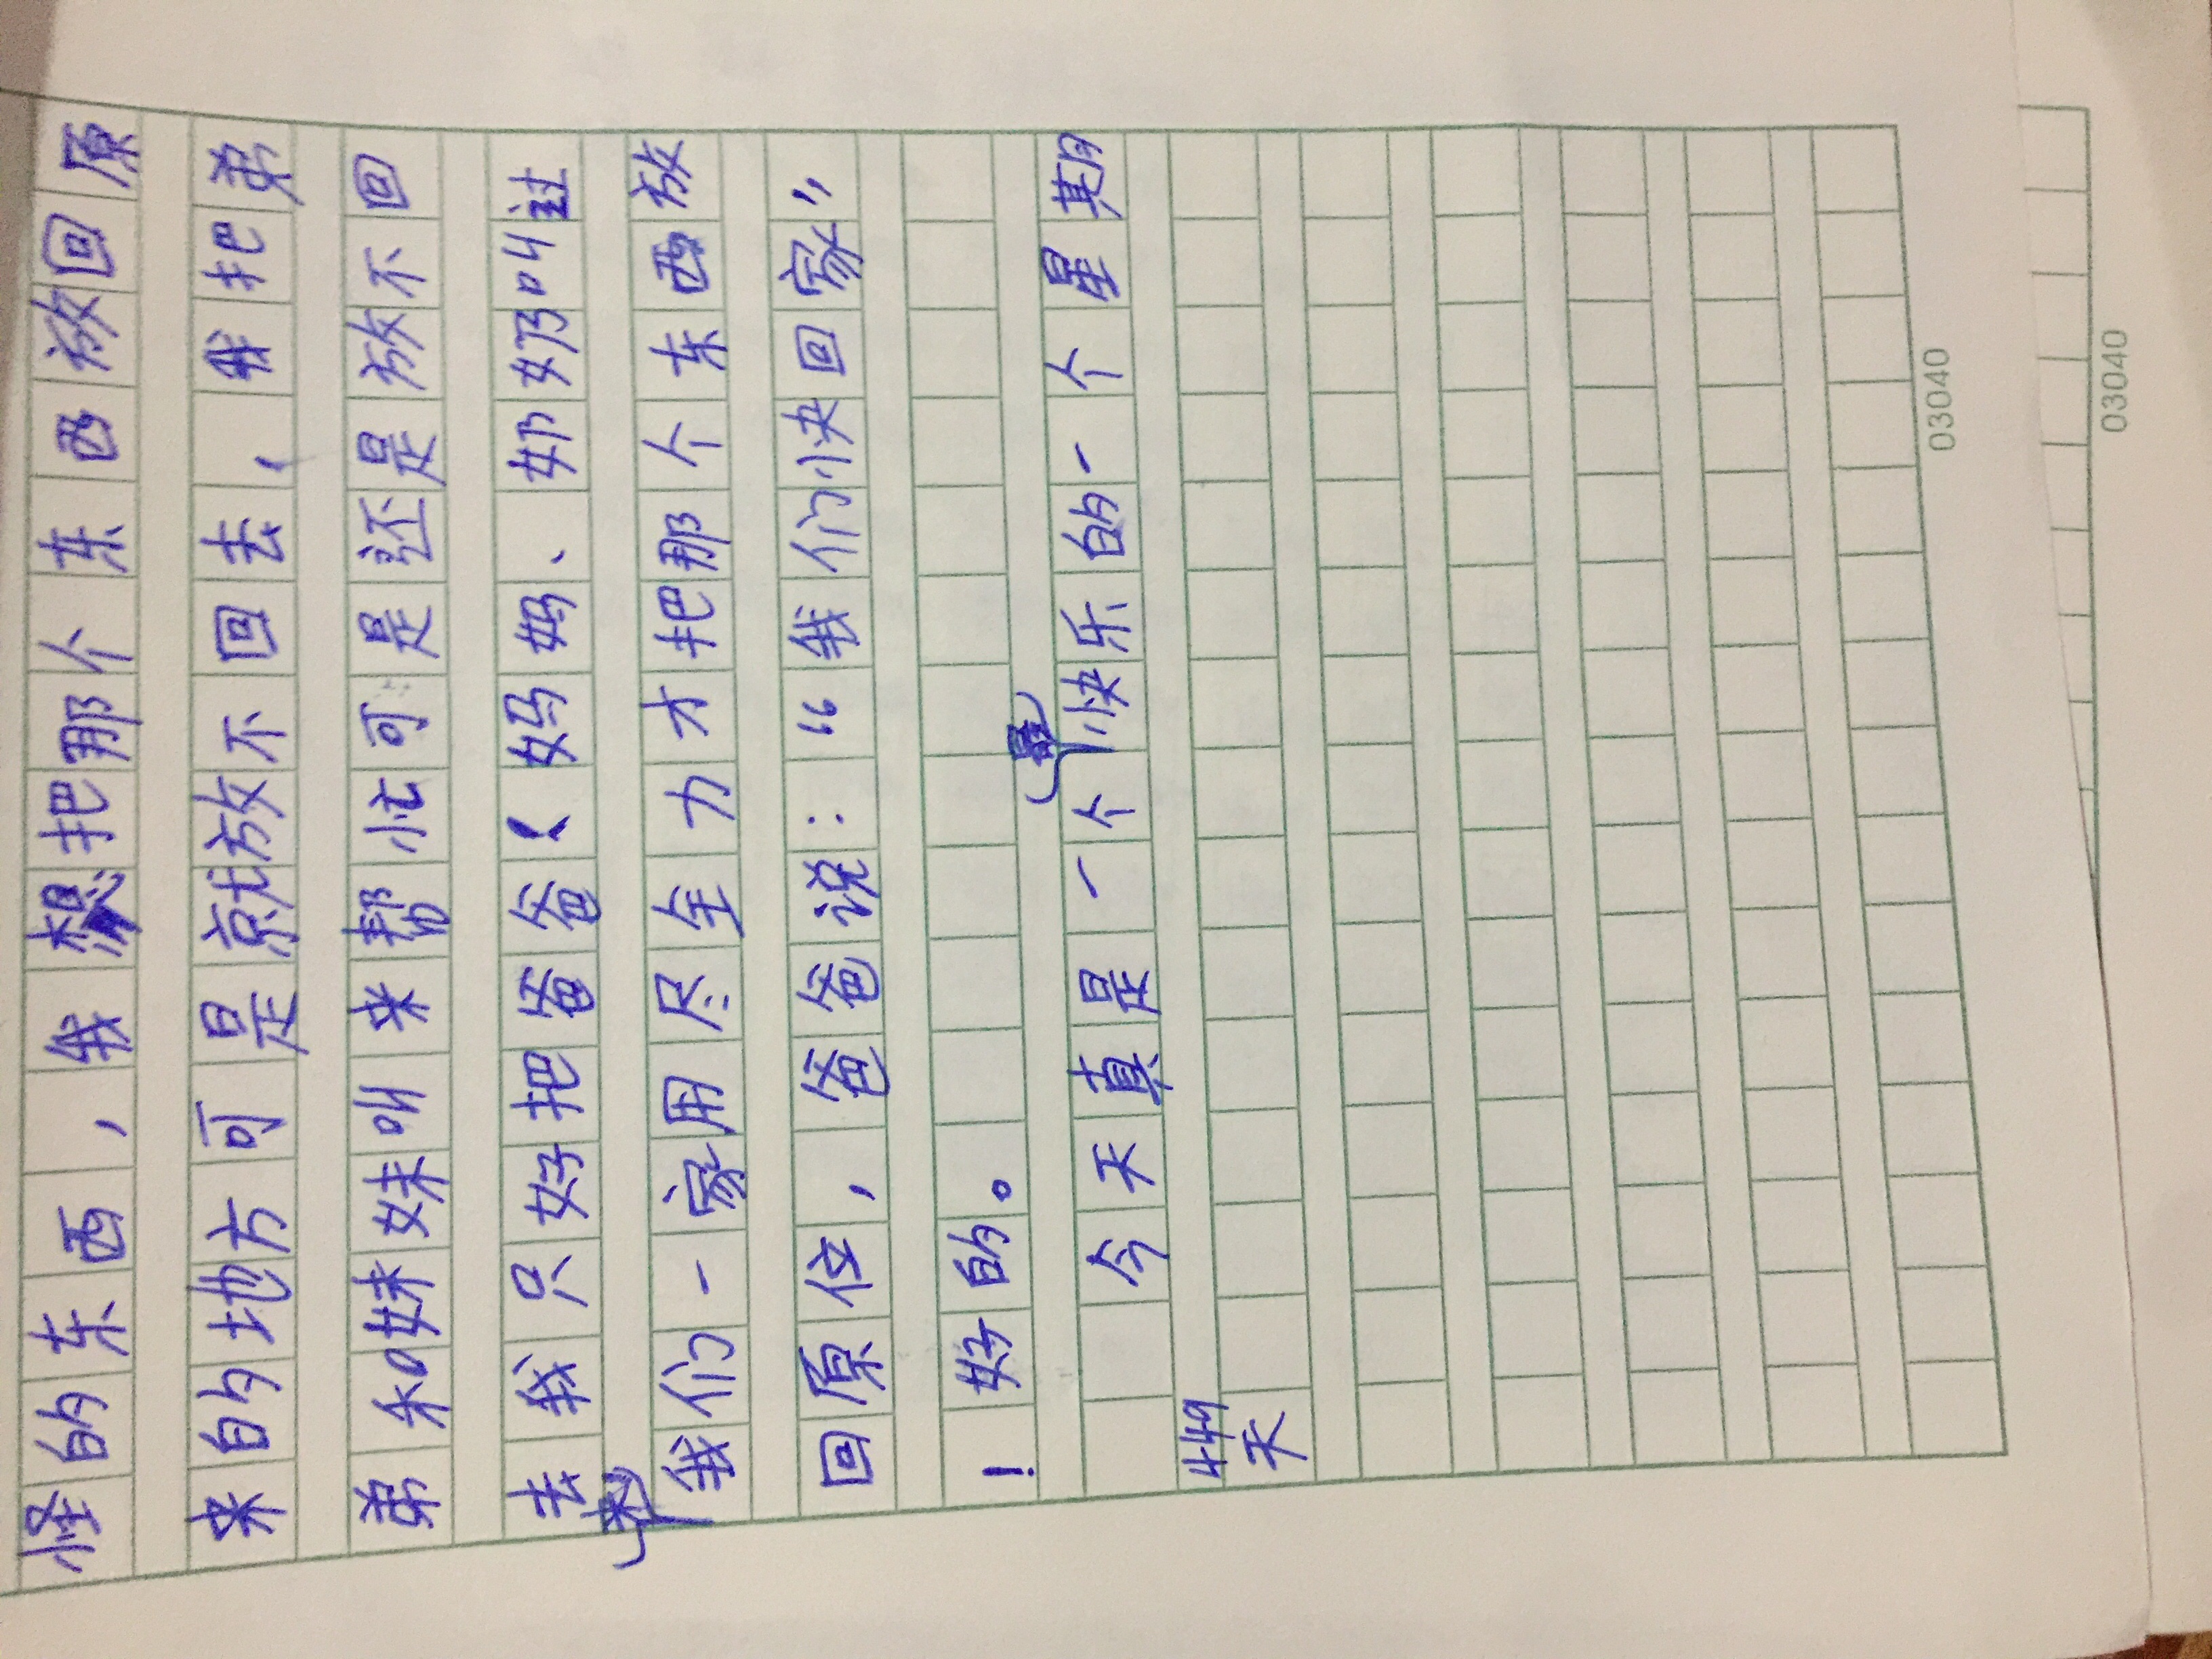 怪的东西，我想把那个东西放回原
来的地方可是就放不回去，我把弟
弟和妹妹叫来帮忙可是还是放不回
去我只好把爸爸、妈妈、奶奶叫过
来
我们一家用尽全力才把那个东西放
回原位，爸爸说：“我们快回家”
！好的。
最
今天真是一个快乐的一个星期
449
天
03040
03040